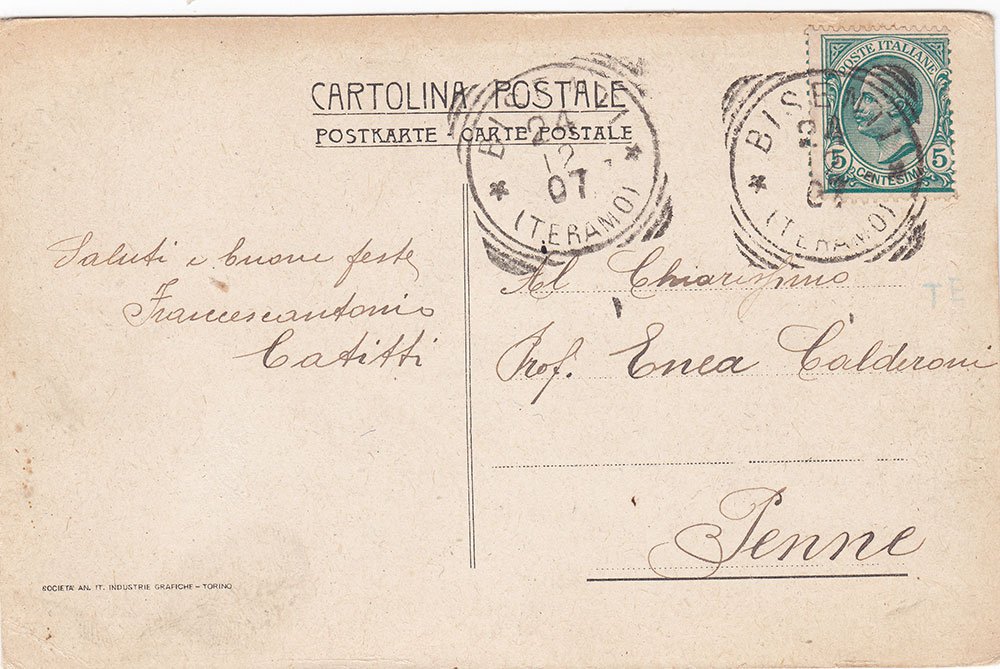 CARTOLINA POSTALE
POSTKARTE - CARTE POSTALE
BISENTI
24
12
07
(TERAMO)
BISENTI
24
07
(TERAMO)
POSTE ITALIANE
5 5
CENTESIMI
TE
Saluti e buone feste
Francescantonio
Catitti
Al Chiarissimo
Prof. Enea Calderoni
Penne
SOCIETÀ AN. IT. INDUSTRIE GRAFICHE – TORINO